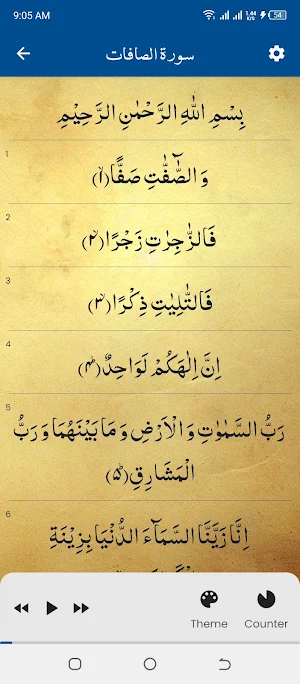 9:05 AM
1.44 K/s
54
سورة الصافات
بِسْمِ اللّٰهِ الرَّحْمٰنِ الرَّحِيْمِ
1
وَالصّٰٓفّٰتِ صَفًّا(۱)
2
فَالزّٰجِرٰتِ زَجْرًا(۲)
3
فَالتّٰلِيٰتِ ذِكْرًا(۳)
4
اِنَّ اِلٰهَكُمْ لَوَاحِدٌ(۴)
5
رَبُّ السَّمٰوٰتِ وَالْاَرْضِ وَمَا بَيْنَهُمَا وَرَبُّ
الْمَشَارِقِ(۵)
6
اِنَّا زَيَّنَّا السَّمَآءَ الدُّنْيَا بِزِيْنَةِ
Theme
Counter